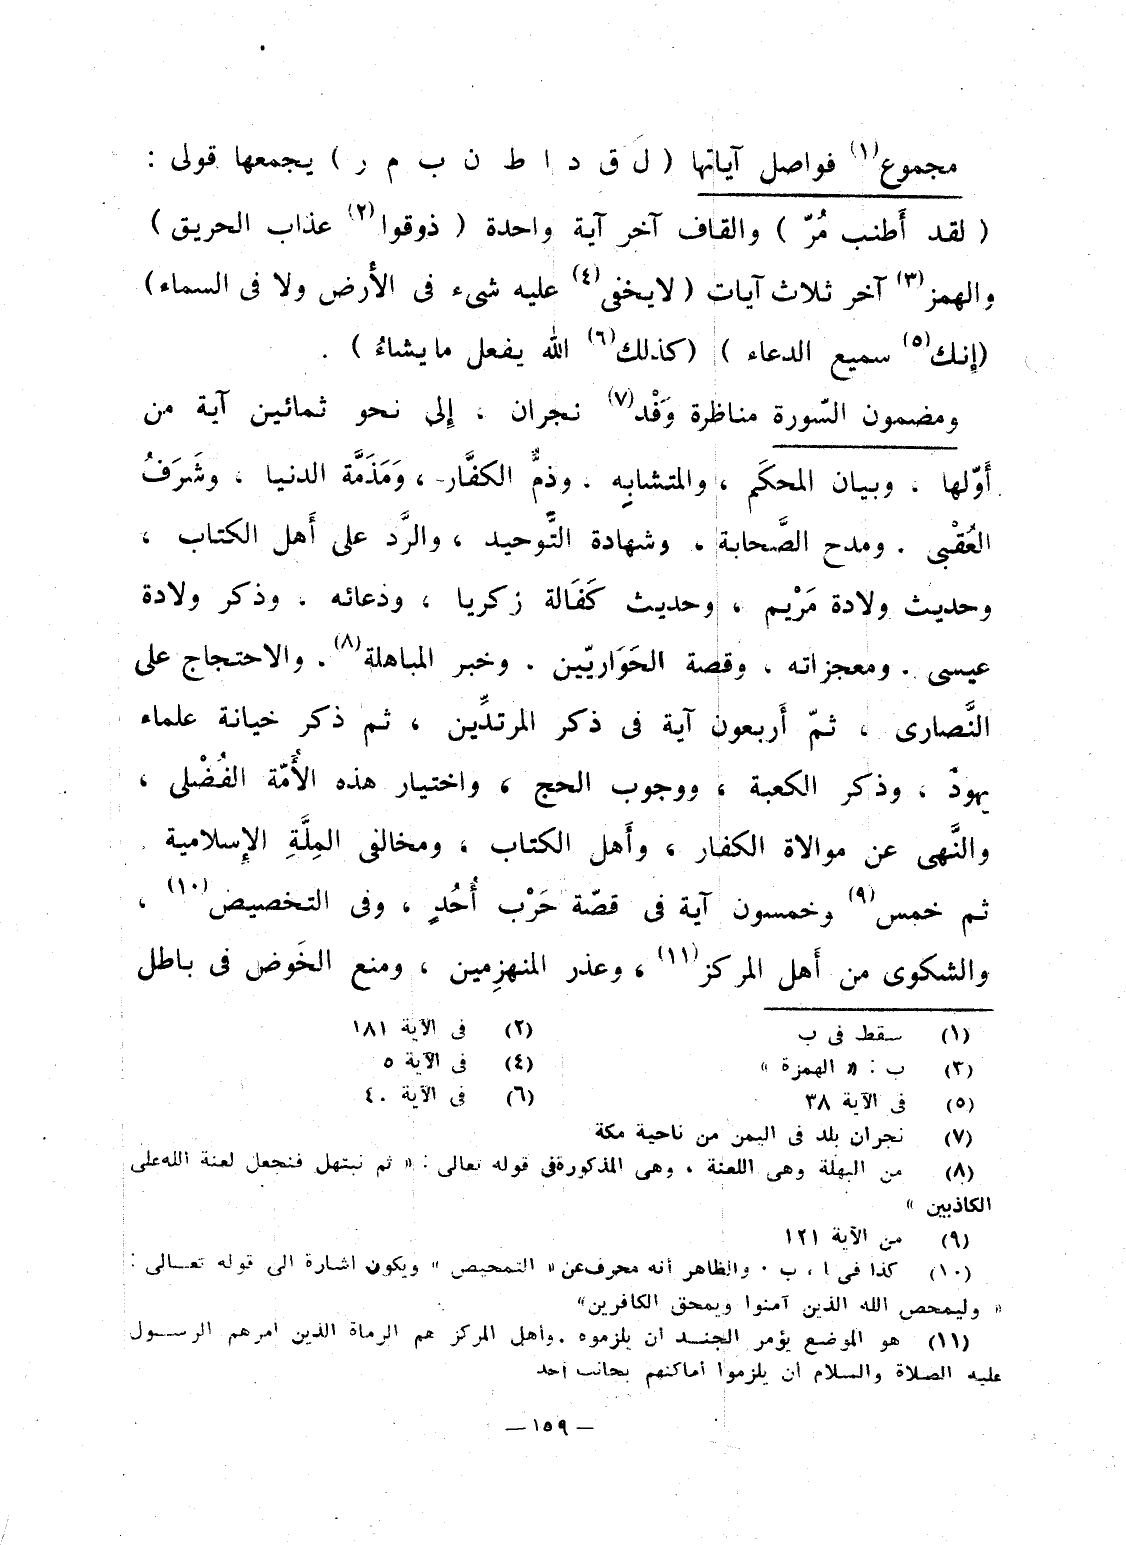 مجموع(١) فواصل آياتها ( ل ق د ا ط ن ب م ر ) يجمعها قولى :
( لقد أَطنب مُرّ ) والقاف آخر آية واحدة ( ذوقوا(٢) عذاب الحريق )
والهمز(٣) آخر ثلاث آيات ( لايخفى(٤) عليه شىء فى الأرض ولا فى السماء )
(إنك(٥) سميع الدعاء ) (كذلك(٦) الله يفعل مايشاءُ ) .
ومضمون السّورة مناظرة وَفْد(٧) نجران ، إلى نحو ثمانين آية من
أَوّلها ، وبيان المحكَم ، والمتشابِه . وذمُّ الكفَّار ، وَمَذَمَّة الدنيا ، وشَرَفُ
العُقْبى . ومدح الصَّحابة . وشهادة التَّوحيد ، والرَّد على أَهل الكتاب ،
وحديث ولادة مَرْيم ، وحديث كَفَالة زكريا ، ودعائه . وذكر ولادة
عيسى . ومعجزاته . وقصة الحَوَاريّين . وخبر المباهلة(٨) . والاحتجاج على
النَّصارى ، ثمّ أَربعون آية فى ذكر المرتدِّين ، ثم ذكر خيانة علماء
يهود ، وذكر الكعبة ، ووجوب الحج ، واختيار هذه الأُمّة الفُضْلى ،
والنَّهى عن موالاة الكفار ، وأَهل الكتاب ، ومخالفى المِلَّةِ الإِسلامية .
ثم خمس(٩) وخمسون آية فى قصّة حَرْب أُحُدٍ ، وفى التخصيص(١٠) ،
والشكوى من أَهل المركز(١١) ، وعذر المنهزِمين ، ومنع الخَوض فى باطل
(١) سقط فى ب
(٢) فى الآية ١٨١
(٣) ب : « الهمزة »
(٤) فى الآية ٥
(٥) فى الآية ٣٨
(٦) فى الآية ٤٠
(٧) نجران بلد فى اليمن من ناحية مكة
(٨) من البهلة وهى اللعنة ، وهى المذكورةفى قوله تعالى : « ثم نبتهل فنجعل لعنة اللهعلى
الكاذبين »
(٩) من الآية ١٢١
(١٠) كذا فى ا ، ب . والظاهر أنه محرفعن« التمحيص » ويكون اشارة الى قوله تعـالى :
« وليمحص الله الذين آمنوا ويمحق الكافرين»
(١١) هو الموضع يؤمر الجنـد أن يلزموه .وأهل المركز هم الرماة الذين أمرهم الرسـول
عليه الصلاة والسلام أن يلزموا أماكنهم بجانب أحد
— ١٥٩ —